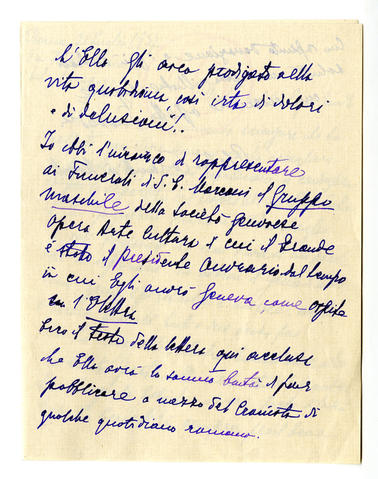 ch'Ella gli avea prodigato nella
vita quotidiana, così irta di dolori
e di delusioni!.
Io ebbi l'incarico di rappresentare
ai Funerali di S. E. Marconi il Gruppo
maschile della Società Genovese
Opera Arte Cultura di cui il Grande
è stato il presidente onorario dal tempo
in cui Egli onorò Genova, come ospite
l'Elettra
Ecco il Testo della lettera qui acclusa
che Ella avrà la somma bontà di far
pubblicare a mezzo del Cronista di
qualche quotidiano romano.